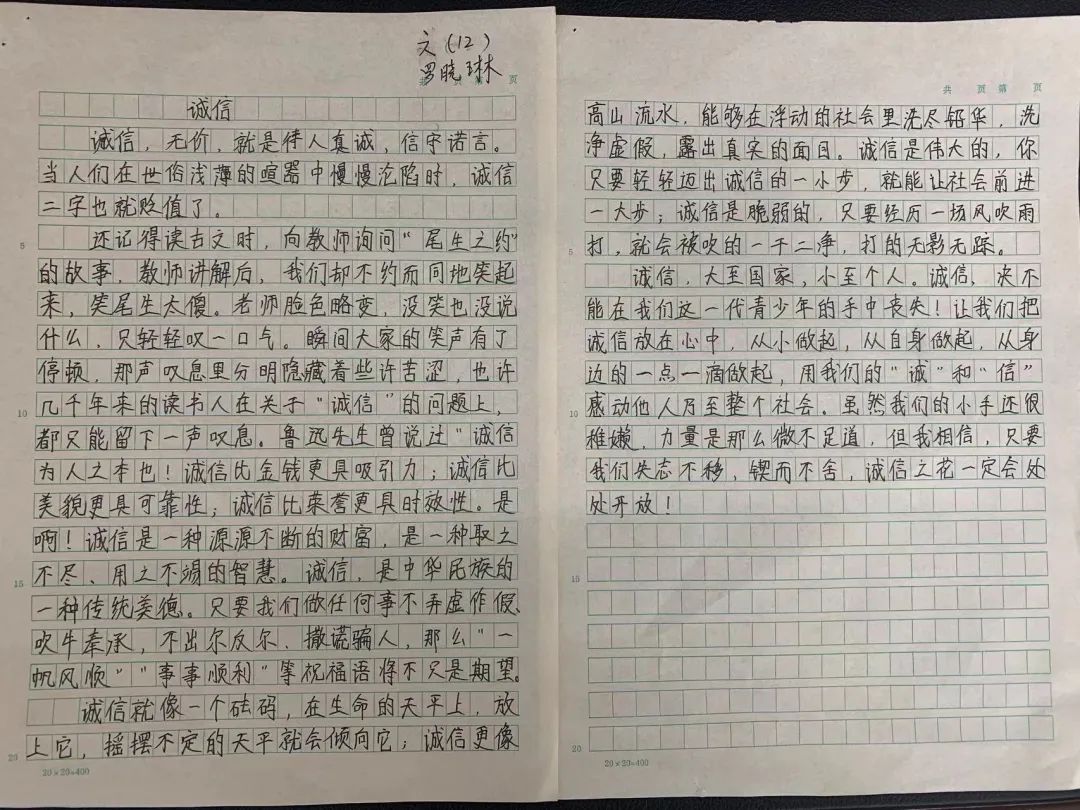 文（12）
罗晓琳
共 页 第 页
诚信
诚信，无价，就是待人真诚，信守诺言。
当人们在世俗浅薄的喧嚣中慢慢沦陷时，诚信
二字也就贬值了。
还记得读古文时，向教师询问“尾生之约”
的故事，教师讲解后，我们却不约而同地笑起
来，笑尾生太傻。老师脸色略变，没笑也没说
什么，只轻轻叹一口气。瞬间大家的笑声有了
停顿，那声叹息里分明隐藏着些许苦涩，也许
几千年来的读书人在关于“诚信”的问题上，
都只能留下一声叹息。鲁迅先生曾说过“诚信
为人之本也！诚信比金钱更具吸引力；诚信比
美貌更具可靠性；诚信比荣誉更具时效性。是
啊！诚信是一种源源不断的财富，是一种取之
不尽、用之不竭的智慧。诚信，是中华民族的
一种传统美德。只要我们做任何事不弄虚作假、
吹牛奉承，不出尔反尔、撒谎骗人，那么“一
帆风顺”“事事顺利”等祝福语将不只是期望。
诚信就像一个砝码，在生命的天平上，放
上它，摇摆不定的天平就会倾向它；诚信更像
5
10
15
20
20×20=400
共 页 第 页
高山流水，能够在浮动的社会里洗尽铅华，洗
净虚假，露出真实的面目。诚信是伟大的，你
只要轻轻迈出诚信的一小步，就能让社会前进
一大步；诚信是脆弱的，只要经历一场风吹雨
打，就会被吹的一干二净，打的无影无踪。
诚信，大至国家，小至个人。诚信，决不
能在我们这一代青少年的手中丧失！让我们把
诚信放在心中，从小做起，从自身做起，从身
边的一点一滴做起，用我们的“诚”和“信”
感动他人乃至整个社会。虽然我们的小手还很
稚嫩，力量是那么微不足道，但我相信，只要
我们矢志不移，锲而不舍，诚信之花一定会处
处开放！
5
10
15
20
20×20=400